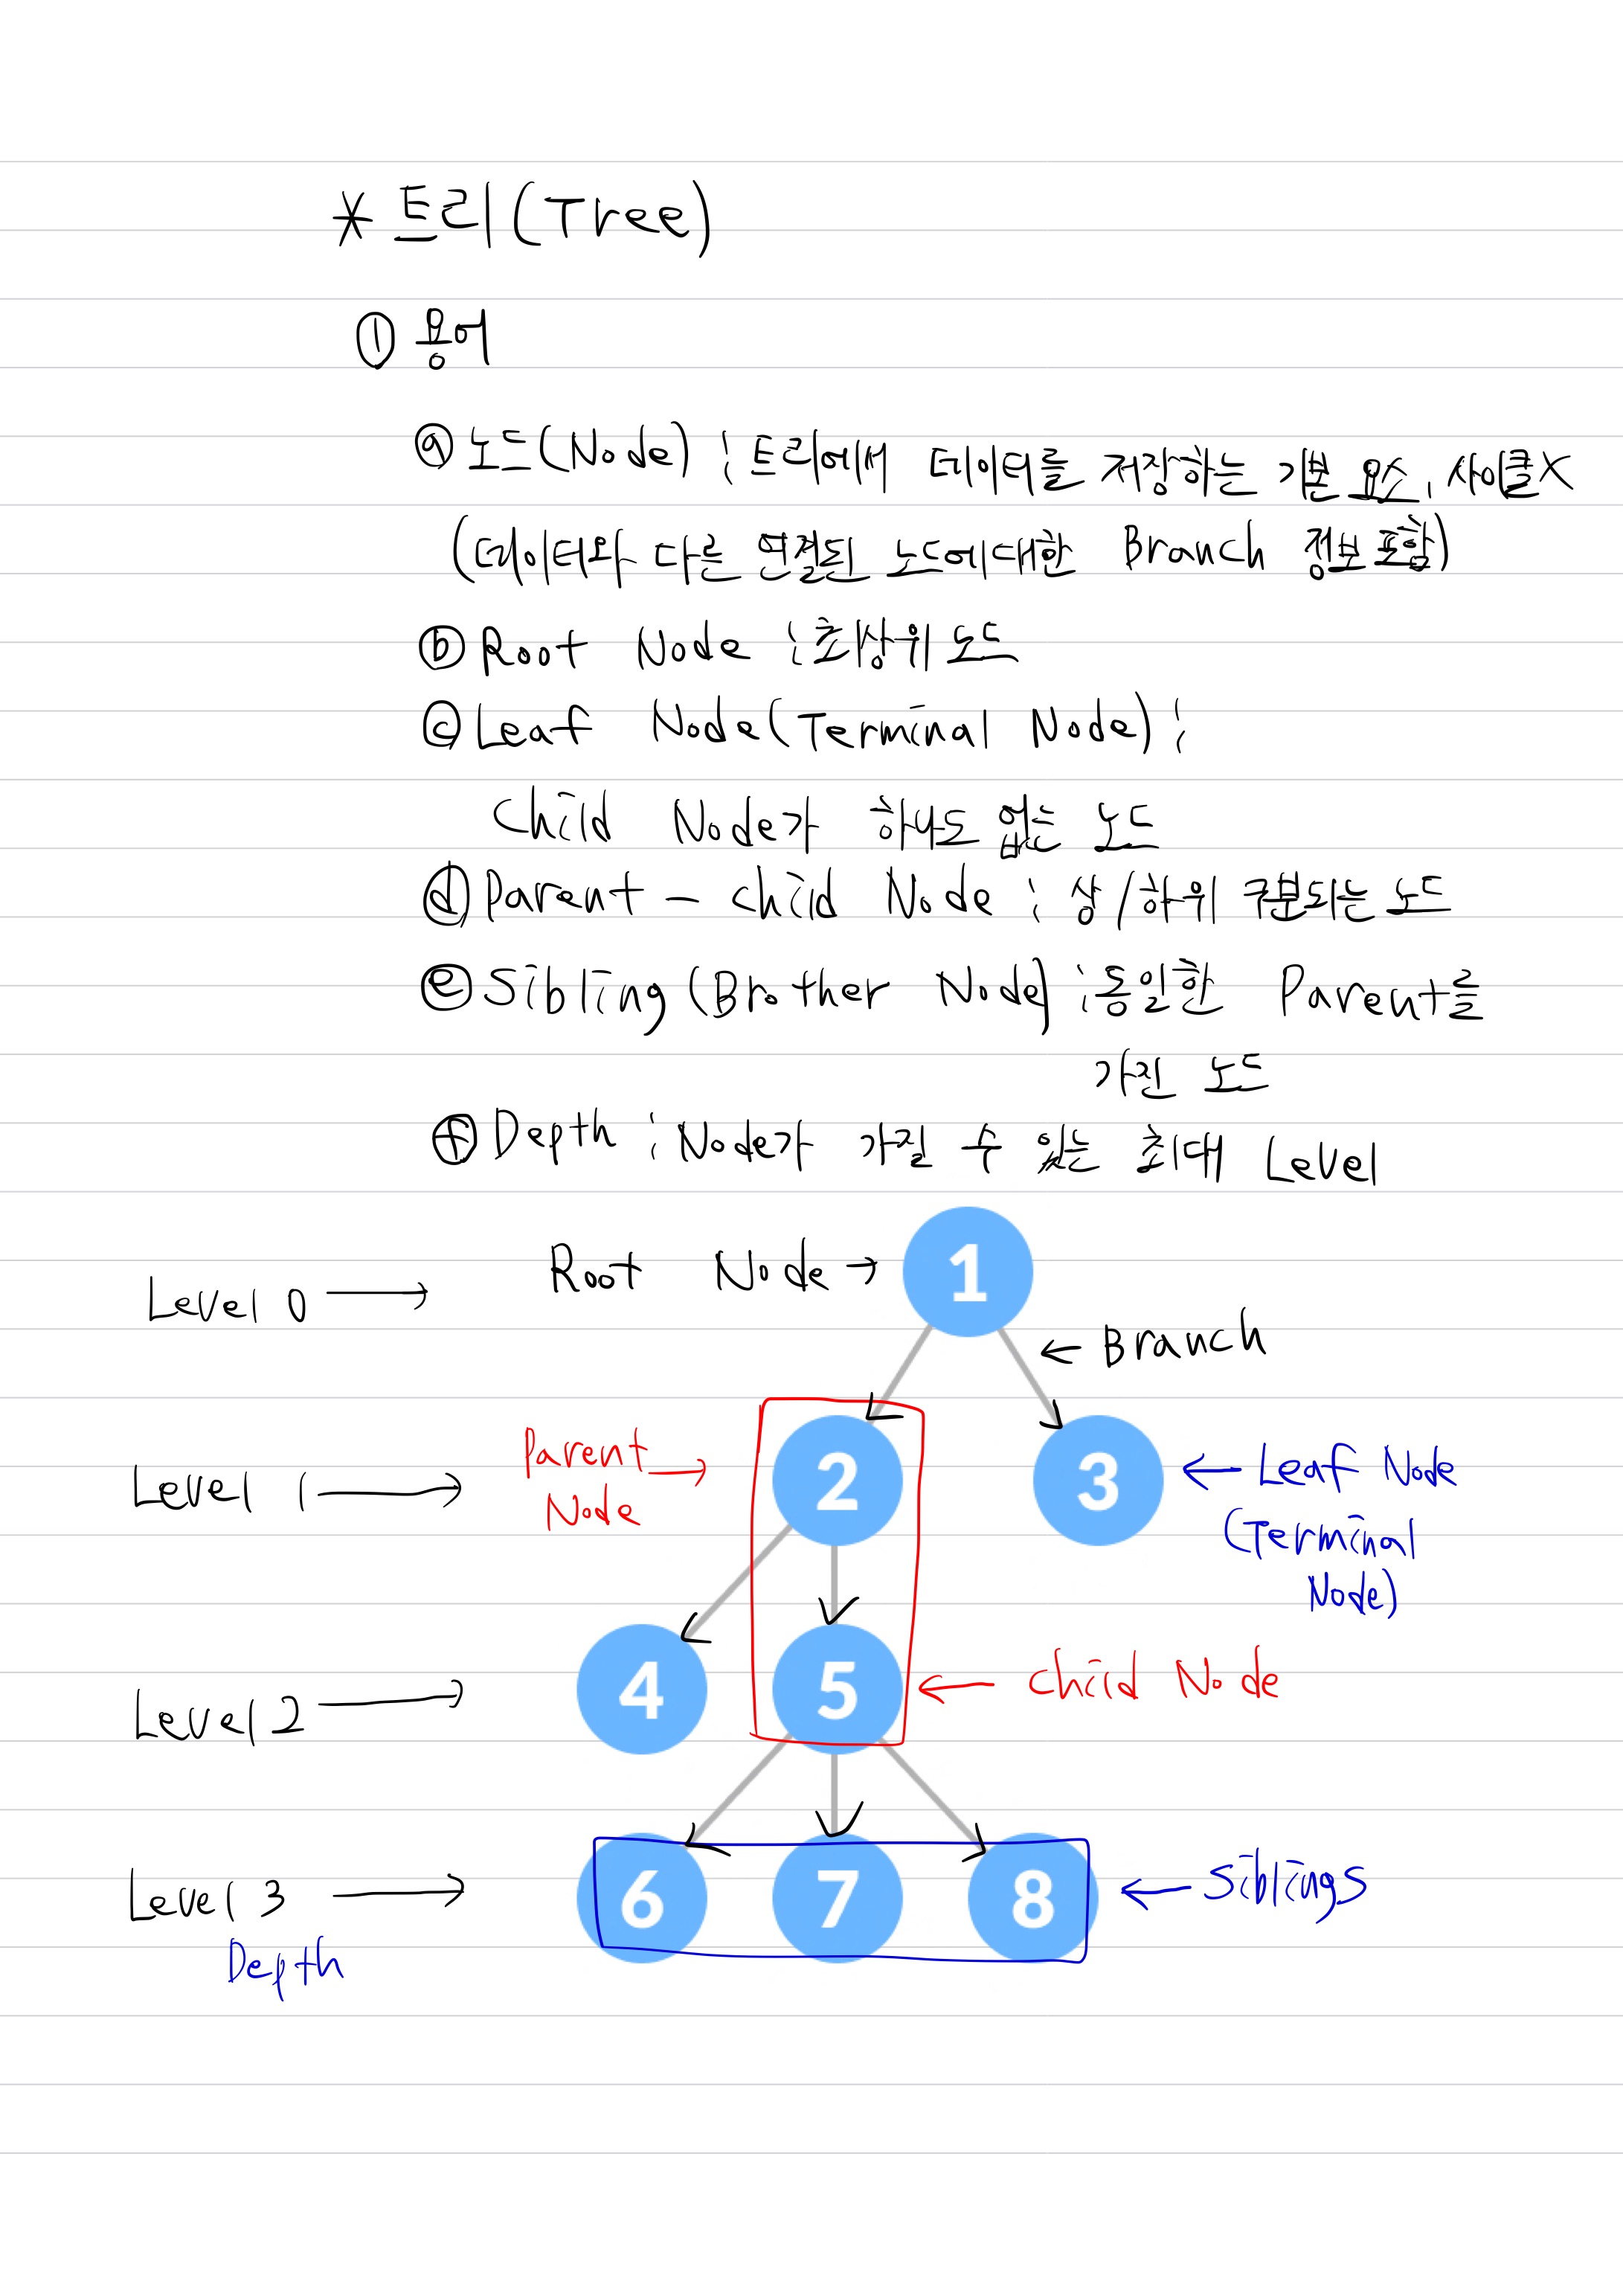 * 트리(Tree)
① 용어
ⓐ 노드(Node) : 트리에서 데이터를 저장하는 기본 요소, 사이클X
(데이터와 다른 연결된 노드에 대한 Branch 정보 포함)
ⓑ Root Node : 최상위 노드
ⓒ Leaf Node(Terminal Node) :
Child Node가 하나도 없는 노드
ⓓ Parent - Child Node : 상/하위 구분되는 노드
ⓔ Sibling (Brother Node) : 동일한 Parent를
가진 노드
ⓕ Depth : Node가 가질 수 있는 최대 Level
Level 0 → Root Node → 1
← Branch
Level 1 → Parent Node → 2 3 ← Leaf Node
(Terminal
Node)
Level 2 → 4 5 ← Child Node
Level 3 → 6 7 8 ← Siblings
Depth